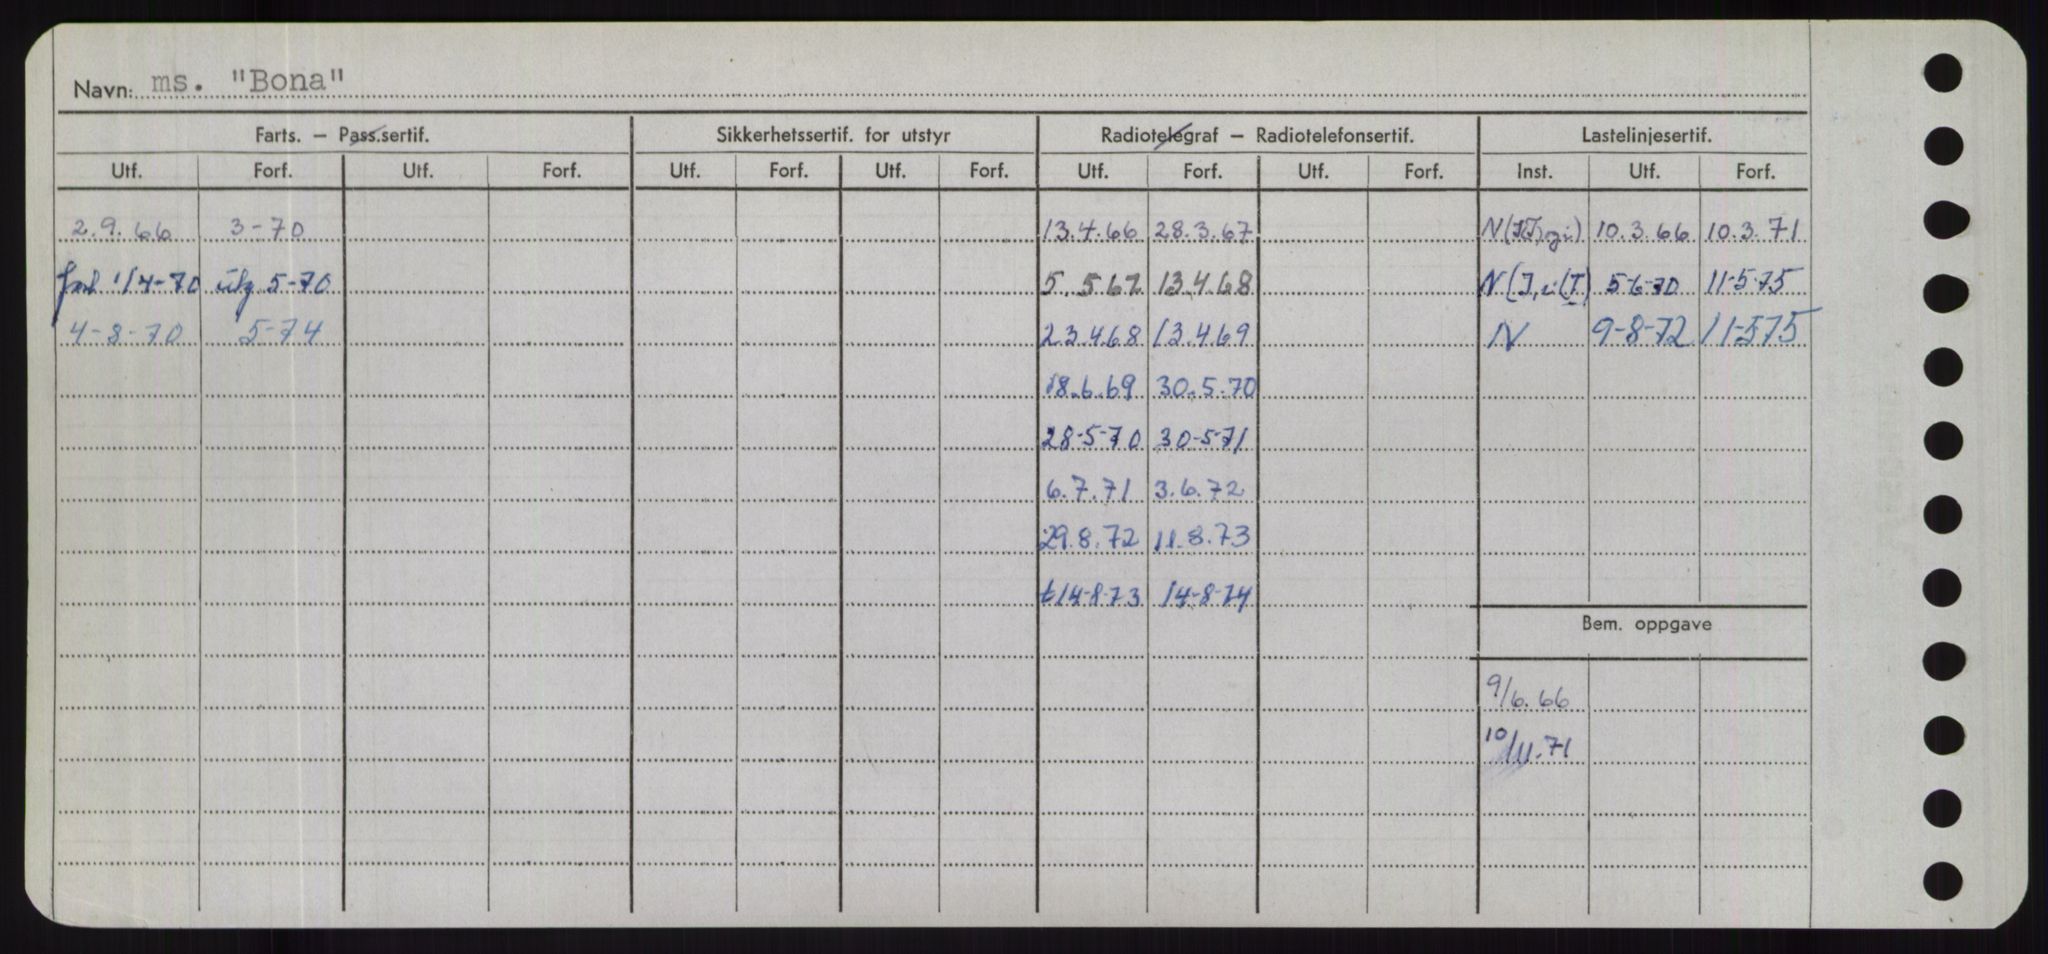 Navn: ms. "Bona"
Farts. – Pass.sertif. Sikkerhetssertif. for utstyr Radiotelegraf – Radiotelefonsertif. Lastelinjesertif.
Utf. Forf. Utf. Forf. Utf. Forf. Utf. Forf. Utf. Forf. Utf. Forf. Inst. Utf. Forf.
2.9.66 3-70 13.4.66 28.3.67 10.3.66 10.3.71
1/4-70 5-70 5.567 13.4.68 5-6-70 11-5-75
4-8-70 5-74 23.468 13.469 N 9-8-72 11-575
18.6.69 30.5.70
28-5-70 30-5-71
6.7.71 3.6.72
29.8.72 11.8.73
t14-8-73 14-8-74
Bem. oppgave
9/6.66
10/11.71